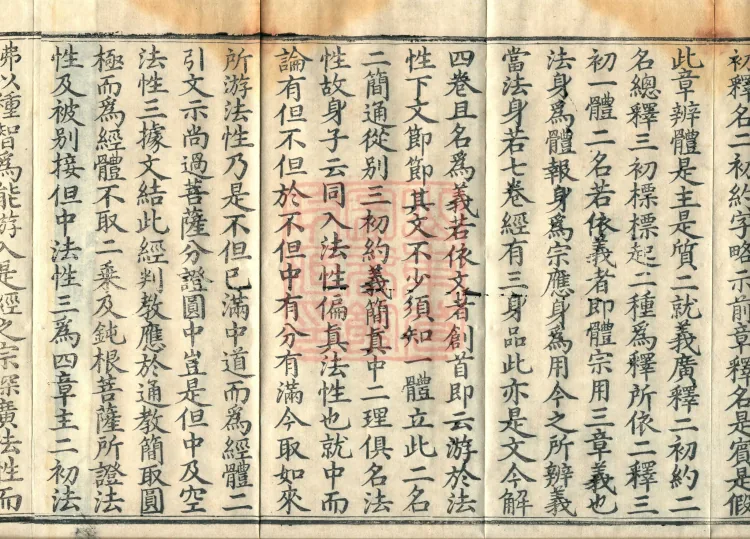 初釋名二初約字略示前章釋名是賓是假
此章辨體是主是質二就義廣釋二初約二
名總釋三初標標起二種為釋所依二釋三
初一體二名若依義者即體宗用三章義也
法身為體報身為宗應身為用今之所辨義
當法身若七卷經有三身品此亦是文今解
四卷且名為義若依文者創首即云游於法
性下文節節其文不少須知一體立此二名
二簡通從別三初約義簡真中二理俱名法
性故身子云同入法性偏真法性也就中而
論有但不但於不但中有分有滿今取如來
所游法性乃是不但已滿中道而為經體二
引文示尚過菩薩分證圓中豈是但中及空
法性三據文結此經判教應於通教簡取圓
極而為經體不取二乘及鈍根菩薩所證法
性及被別接但中法性三為四章主二初法
佛以種智為能游入是經之宗深廣法性而